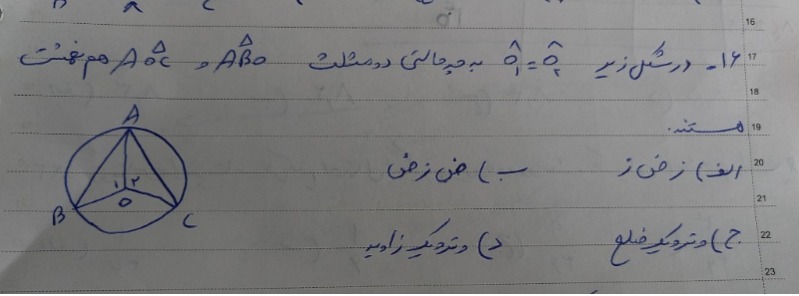 16
۱۶- در شکل زیر Ô₁ = Ô₂ به چه حالتی دو مثلث ABO و AOC هم نهشت 17
18
هستند. 19
الف) ز ض ز ب) ض ز ض 20
21
ج) وتر و یک ضلع د) وتر و یک زاویه 22
23
A
1 2
O
B C